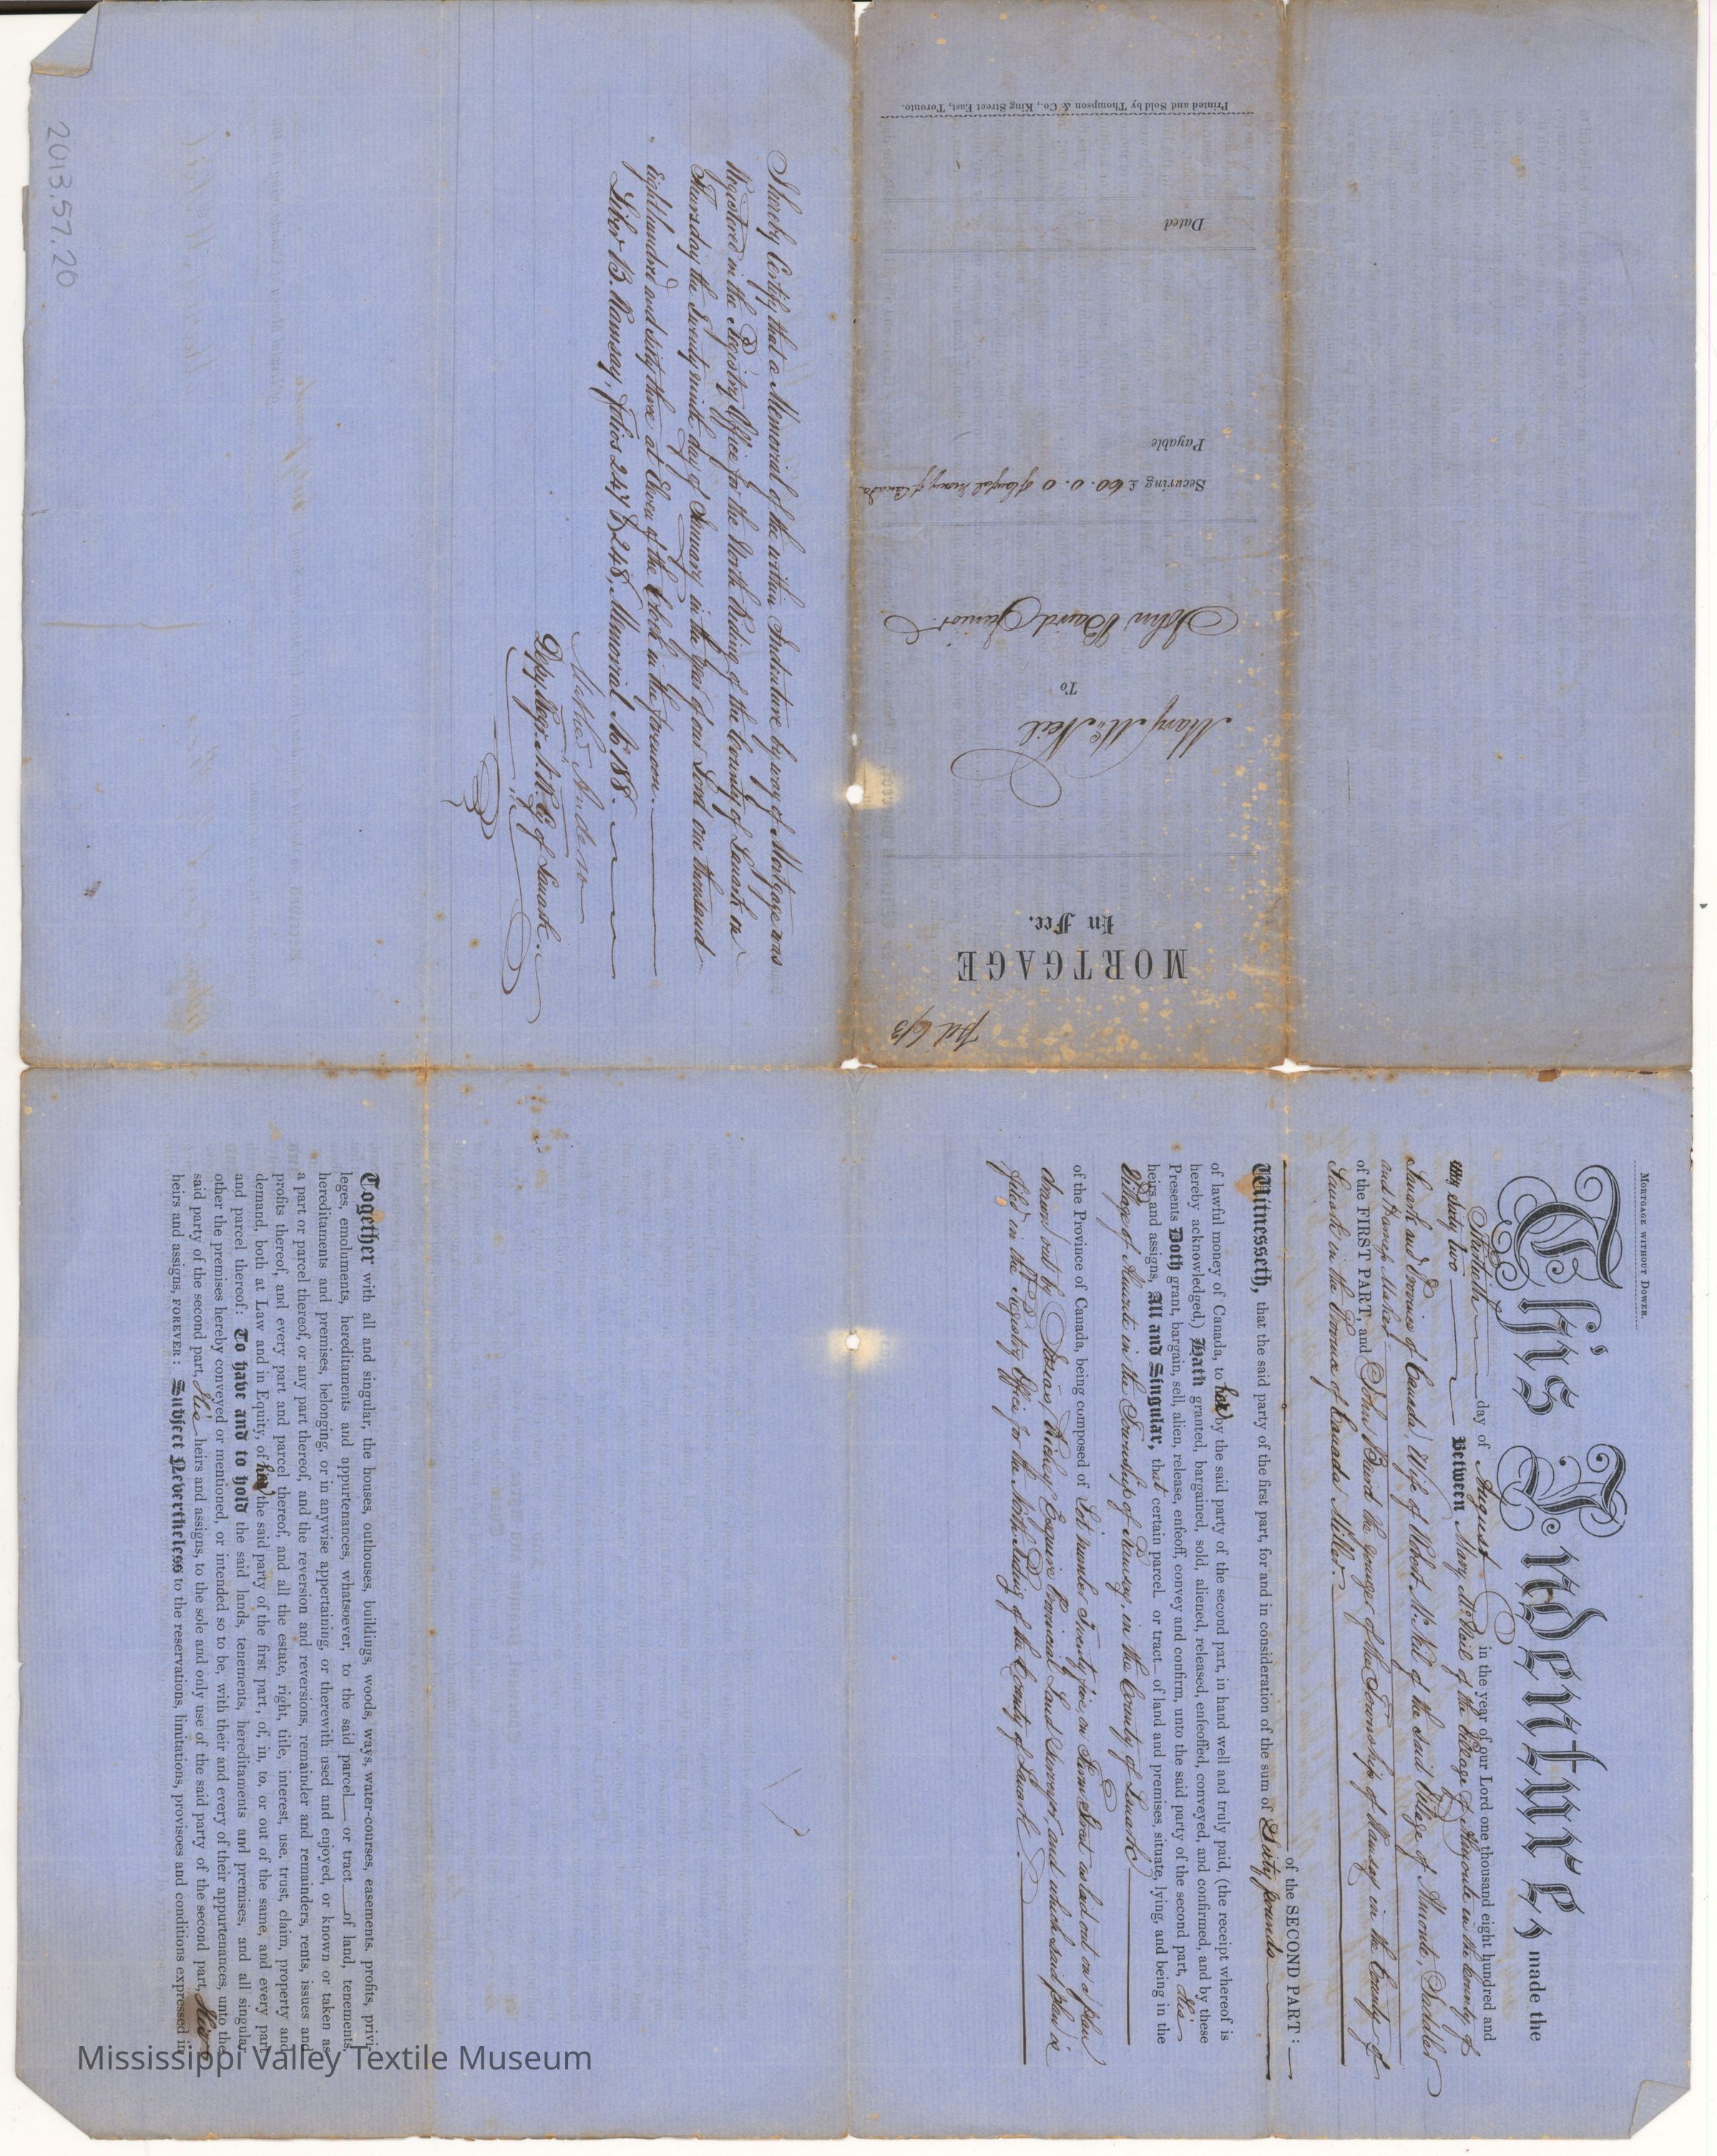 MORTGAGE WITHOUT DOWER.
This Indenture, made the
Thirtieth day of August in the year of our Lord one thousand eight hundred and
sixty two Between Mary McNeil of the Village of Almonte in the County of
Lanark and Province of Canada, Wife of Robert McNeil of the said Village of Almonte, Saddler
and Harness Maker
of the FIRST PART, and John Baird the younger of the Township of Ramsay in the County of
Lanark in the Province of Canada Miller.
of the SECOND PART:
Witnesseth, that the said party of the first part, for and in consideration of the sum of Sixty pounds
of lawful money of Canada, to her by the said party of the second part, in hand well and truly paid, (the receipt whereof is
hereby acknowledged,) Hath granted, bargained, sold, aliened, released, enfeoffed, conveyed, and confirmed, and by these
Presents Doth grant, bargain, sell, alien, release, enfeoff, convey and confirm, unto the said party of the second part, His
heirs and assigns, All and Singular, that certain parcel or tract of land and premises, situate, lying, and being in the
Village of Almonte in the Township of Ramsay, in the County of Lanark
of the Province of Canada, being composed of Lot number Twenty five on Street as laid out on a plan
drawn out by Esquire Provincial Land Surveyor, and which said plan is
filed in the Registry Office for the North Riding of the County of Lanark.
Together with all and singular, the houses, outhouses, buildings, woods, ways, water-courses, easements, profits, privi-
leges, emoluments, hereditaments and appurtenances, whatsoever, to the said parcel or tract of land, tenements,
hereditaments and premises, belonging, or in anywise appertaining, or therewith used and enjoyed, or known or taken as
a part or parcel thereof, or any part thereof, and the reversion and reversions, remainder and remainders, rents, issues and
profits thereof, and every part and parcel thereof, and all the estate, right, title, interest, use, trust, claim, property and
demand, both at Law and in Equity, of her the said party of the first part, of, in, to, or out of the same, and every part
and parcel thereof: To have and to hold the said lands, tenements, hereditaments and premises, and all singular
other the premises hereby conveyed or mentioned, or intended so to be, with their and every of their appurtenances, unto the
said party of the second part, His heirs and assigns, to the sole and only use of the said party of the second part, His
heirs and assigns, FOREVER: Subject Nevertheless to the reservations, limitations, provisoes and conditions expressed in
pd 6/3
MORTGAGE
In Fee.
Mary McNeil
To
John Baird Junior.
Securing £ 60.0.0 of lawful money of Canada
Payable
Dated
Printed and Sold by Thompson & Co., King Street East, Toronto.
I hereby Certify that a Memorial of the within Indenture by way of Mortgage was
Registered in the Registry Office for the North Riding of the County of Lanark on
Thursday the Twenty ninth day of January in the year of our Lord one thousand
eight hundred and sixty three at Eleven of the Clock in the forenoon.
Liber B. Ramsay, folios 247 & 248, Memorial No 188.
Anderson
Depy. Regr. N. R. Cy of Lanark.
2013.57.20
Mississippi Valley Textile Museum